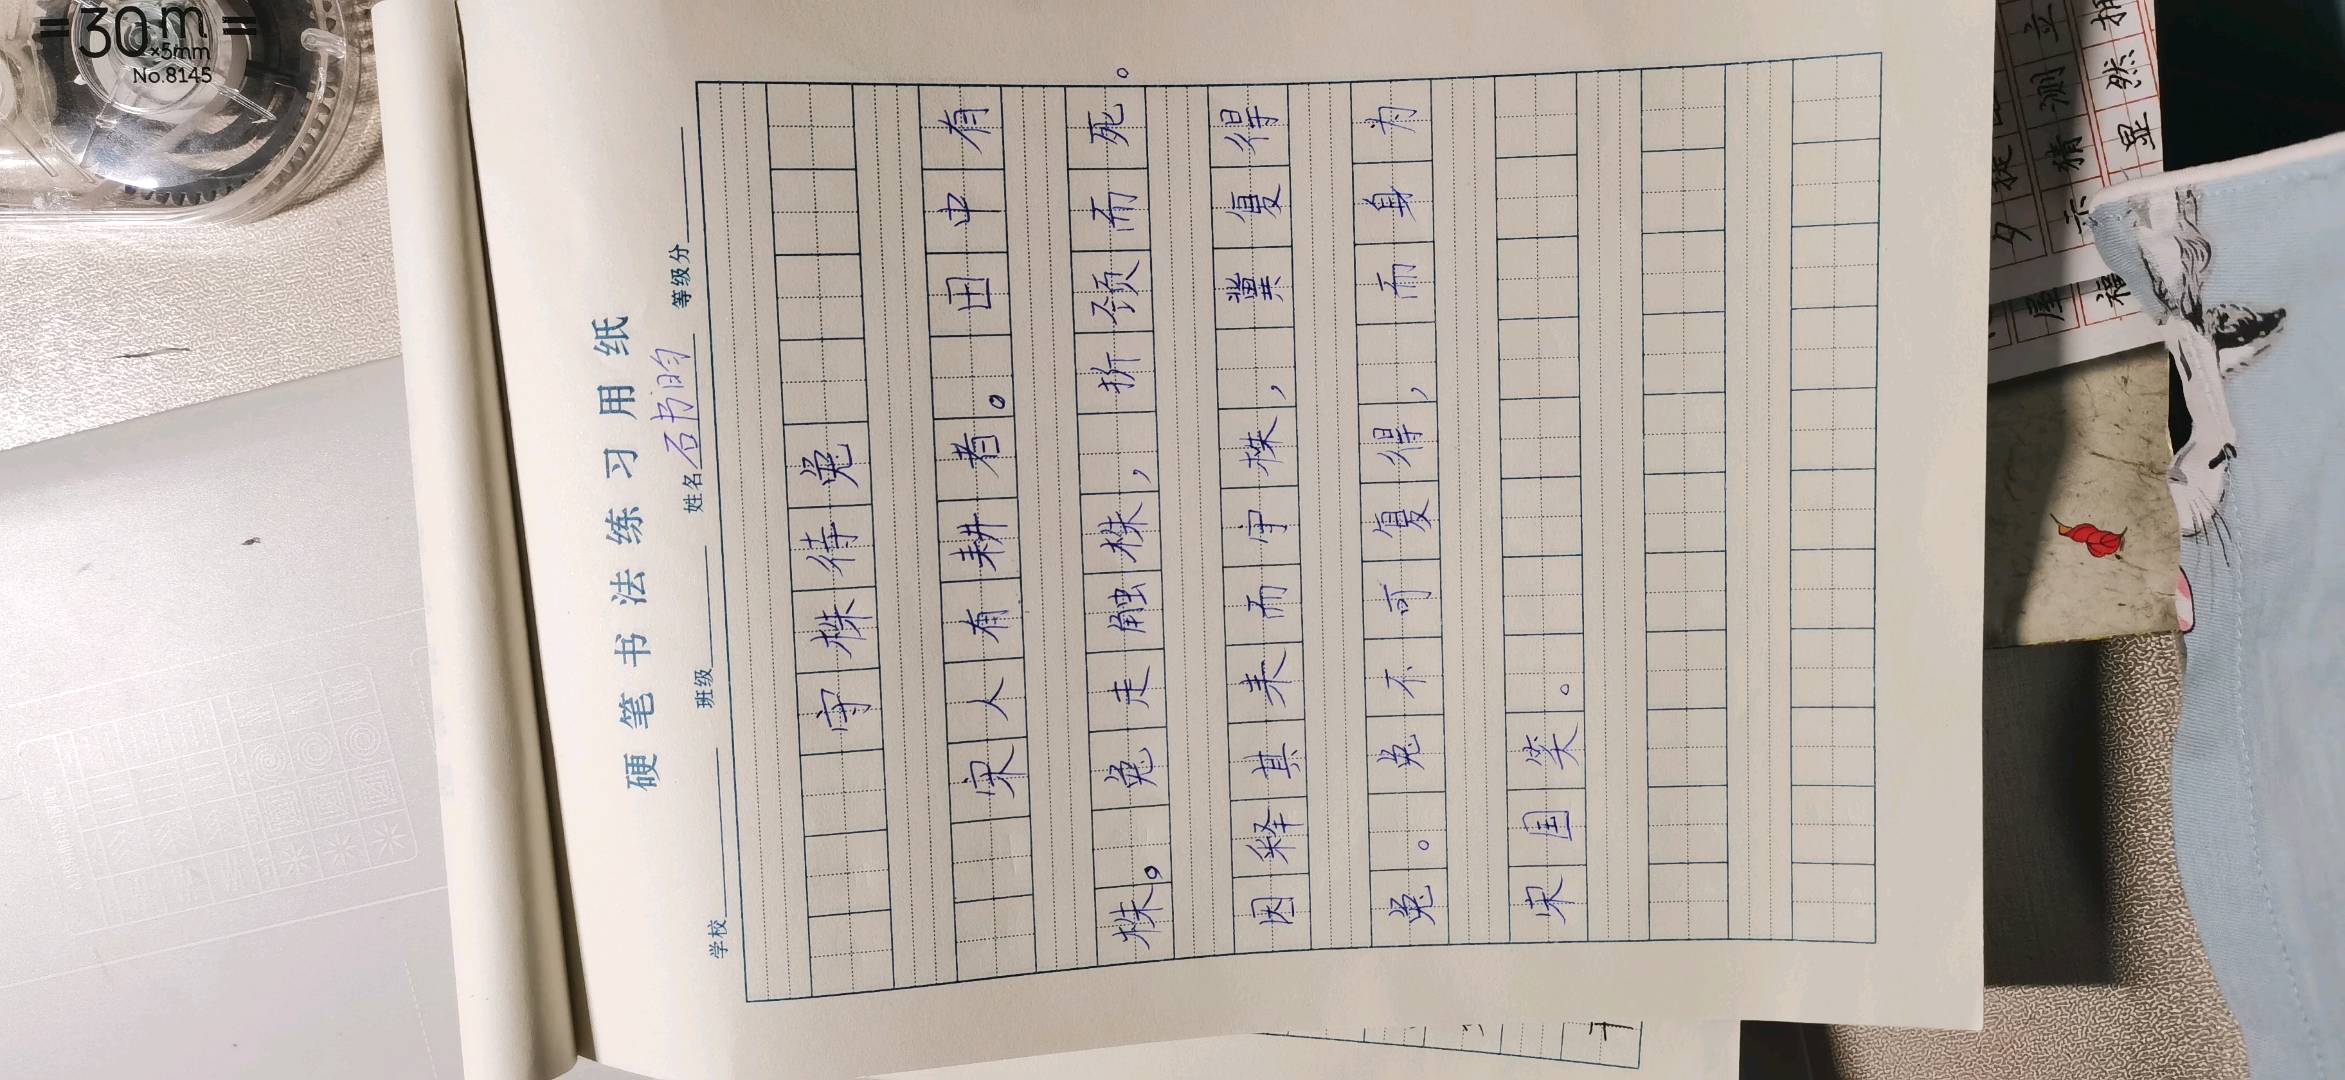 =30m=
×5mm
No.8145
硬笔书法练习用纸
学校 班级 姓名 石书昀 等级分
守株待兔
宋人有耕者。田中有
株。兔走触株，折颈而死。
因释其耒而守株，冀复得
兔。兔不可复得，而身为
宋国笑。
立
猜测
显然
示
屋
福
夕